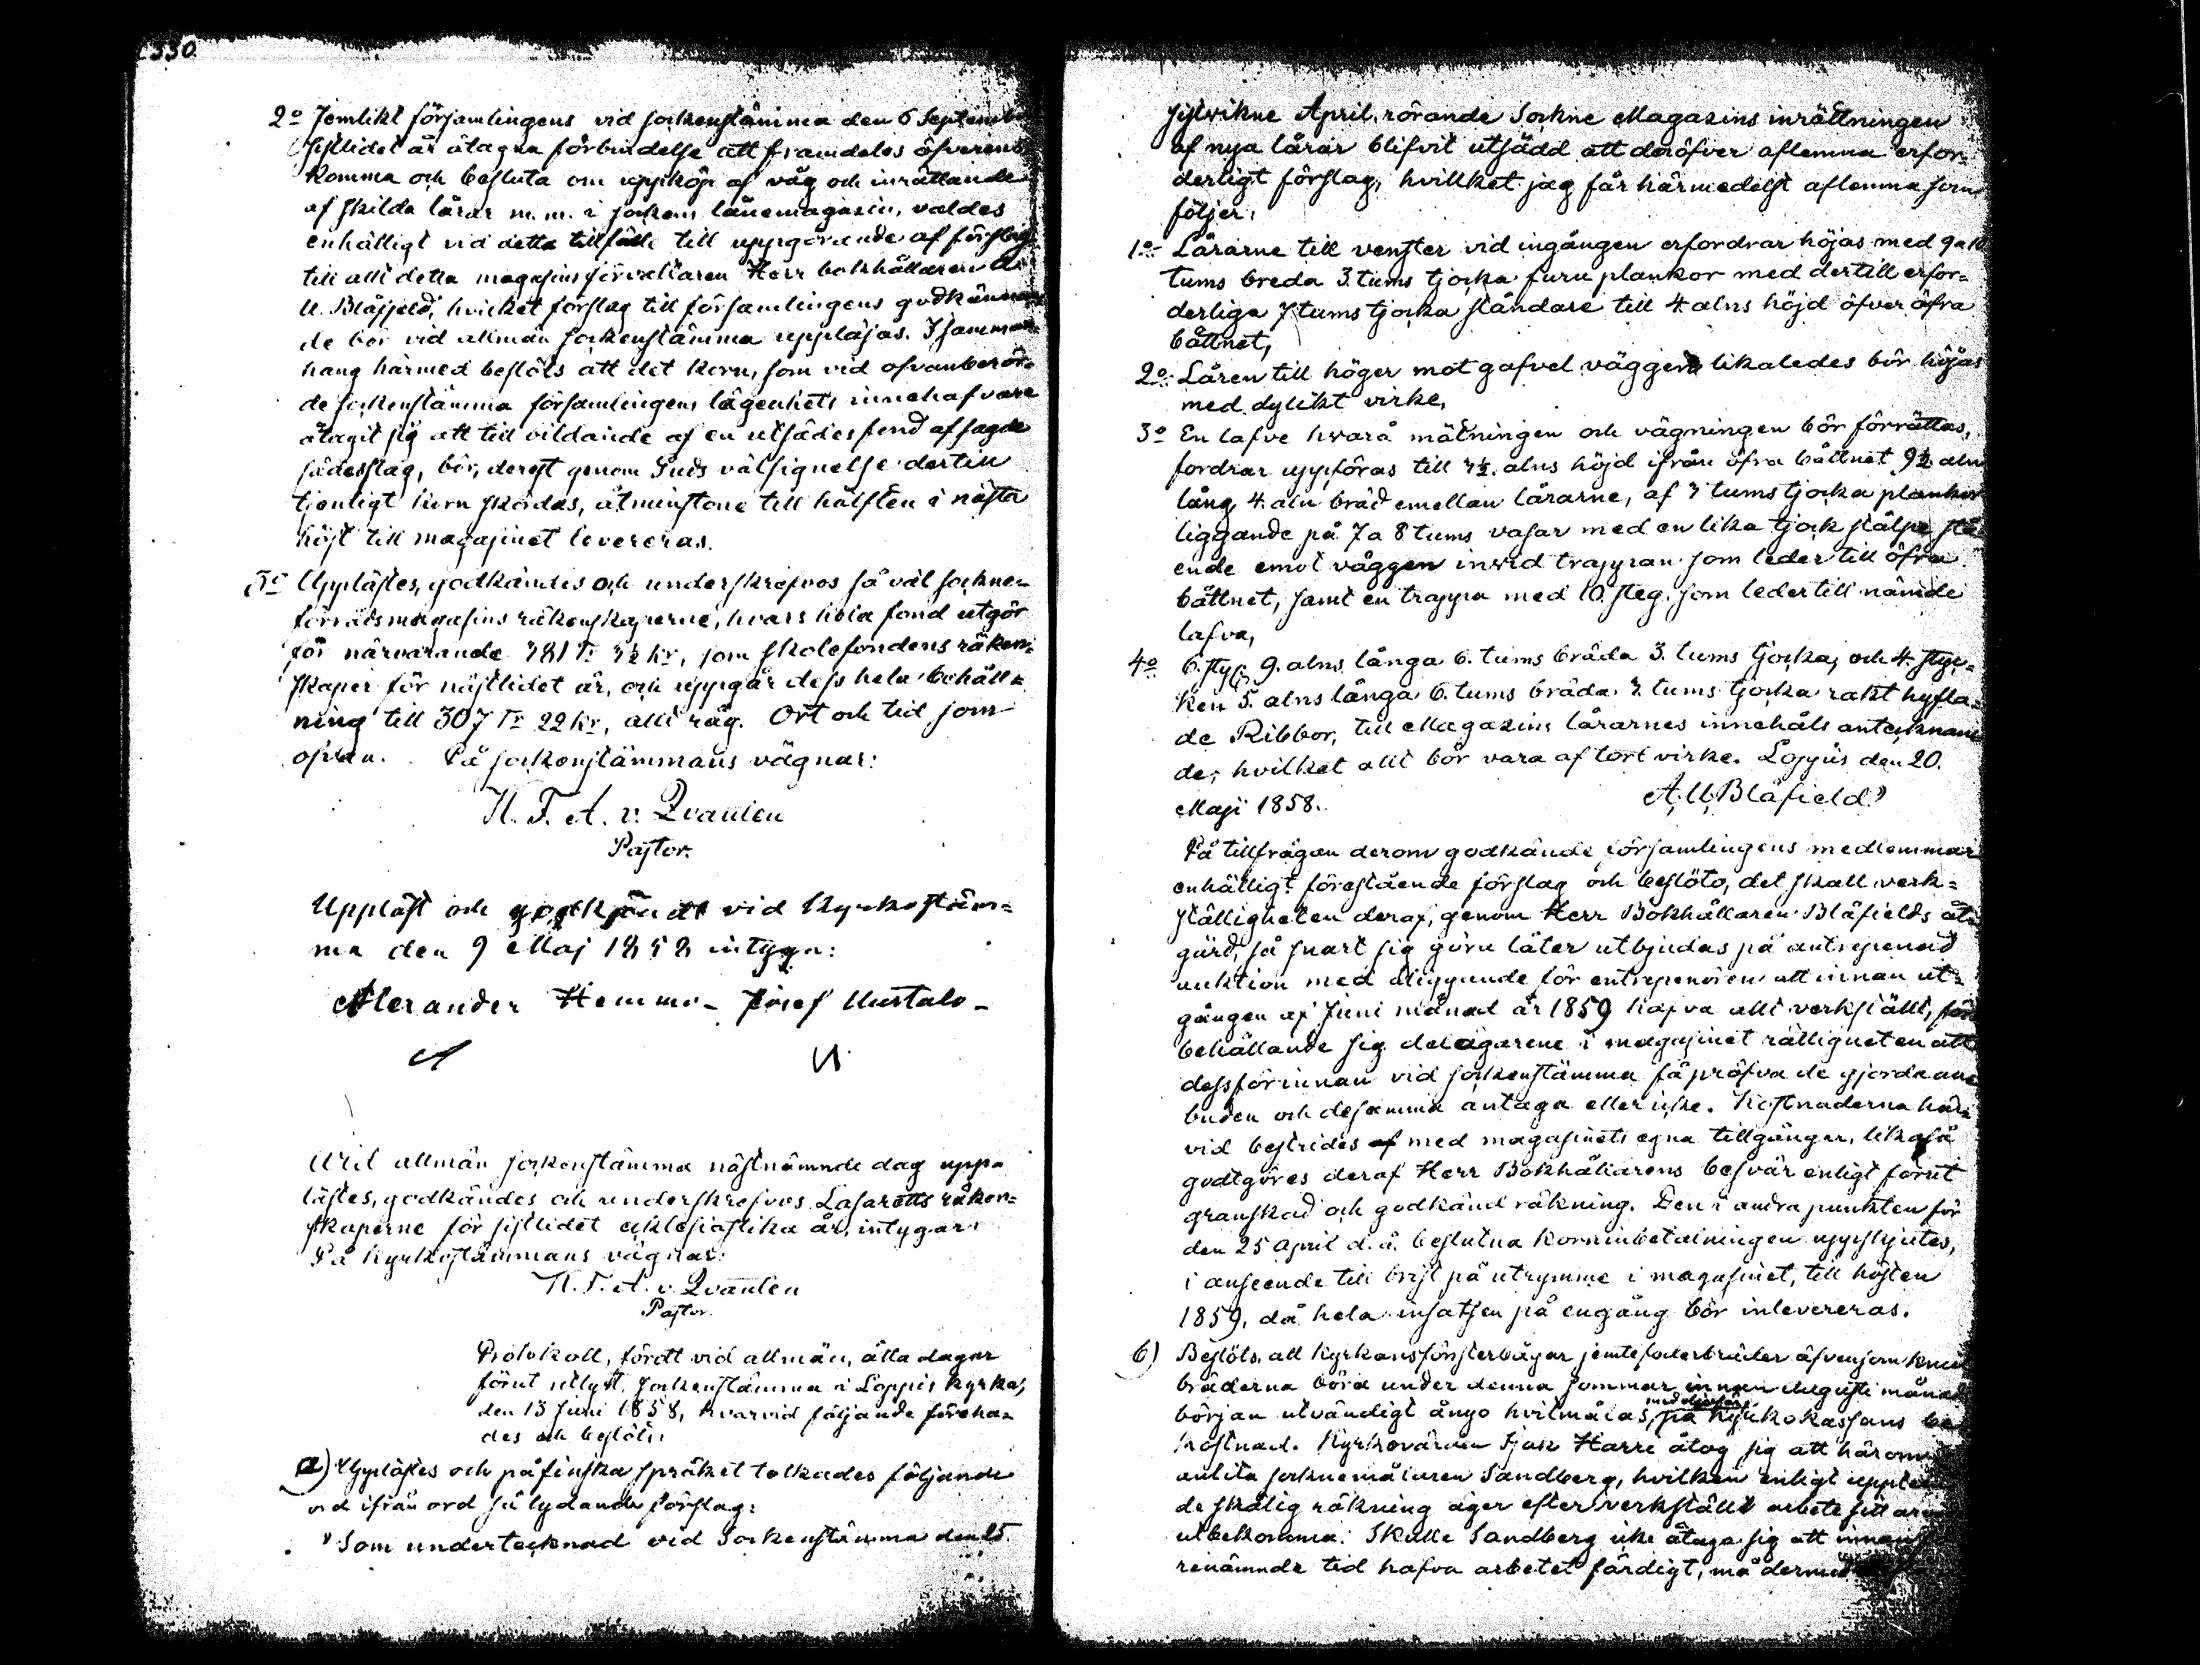 330
2o Jemlikt församlingens vid sockenstämma den 6 September
sistlidet år åtagna förbindelse att framdeles öfverens
komma och besluta om uppköp af våg och inrättande
af skilda lårar m. m. i sockens lånemagasin, valdes
enhälligt vid detta tillfälle till uppgörande af förslag
till allt detta magasinsförvaltaren Herr bokhållaren A.
U. Blåfjeld, hvilket förslag till församlingens godkännan
de bör vid allmän sockenstämma uppläsas. I samman
hang härmed beslöts att det korn, som vid ofvanberör-
de sockenstämma församlingens lägenhets innehafvare
åtagit sig att till bildande af en utsädesfond af sagde
sädesslag, bör, derest genom Guds välsignelse dertill
tjenligt korn skördas, åtminstone till hälften i nästa
höst till magasinet levereras.
3o Upplästes, godkändes och underskrefvos så väl sockne-
förrådsmagasins räkenskaperne, hvars hela fond utgör
för närvarande 381 Tr 3½ kr, som skolefondens räken-
skaper för nästlidet år, och uppgår dess hela behåll-
ning till 307 Tr 22 kr, allt råg. Ort och tid som
ofvan. På sockenstämmans vägnar:
K. F. A. v. Qvanten
Pastor.
Uppläst och godkändt vid Kyrkostäm=
ma den 9 Maj 1858 intyga:
Alexander Hemmo - Josef Uustalo -
Vid allmän sockenstämma nästnämnde dag upp-
lästes, godkändes och underskrefvos Lasaretts räken=
skaperne för sistlidet ecklesiastika år, intygar:
På Kyrkostämmans vägnar:
K. F. A. v. Qvanten
Pastor.
Protokoll, fördt vid allmän, åtta dagar
förut utlyst, sockenstämma i Loppis kyrka,
den 13 Juni 1858, hvarvid följande föreha-
des och beslöts:
a) Upplästes och på finska språket tolkades följande
ord ifrån ord så lydande förslag:
"Som undertecknad vid Sockenstämma den 25
sistvikne April, rörande Sockne Magazins inrättningen
af nya lårar blifvit utsädd att deröfver aflemna erfor-
derligt förslag, hvillket jag får härmedelst aflemna som
följer:
1o- Lårarne till venster vid ingången erfordrar höjas med 9 a 10
tums breda 3. tums tjocka furu plankor med dertill erfor=
derliga 7 tums tjocka ståndare till 4 alns höjd öfver öfra
båttnet,
2o- Låren till höger mot gafvel väggen likaledes bör höjas
med dylikt virke,
3o En lafve hvarå mätningen och vägningen bör förrättas,
fordrar uppföras till 3½ alns höjd ifrån öfra båttnet 9½ aln
lång 4. aln bräd emellan lårarne, af 3 tums tjocka plankor
liggande på 7 a 8 tums vasar med en lika tjock stålpe stå
ende emot väggen invid trappan som leder till öfra
båttnet, samt en trappa med 10. steg, som leder till nämde
lafva,
4o 6. styc 9. alns långa 6. tums bräda 3. tums tjocka, och 4. styc-
ken 5. alns långa 6. tums bräda 3. tums tjocka rakt hyfla-
de Ribbor, till Magazins lårarnes innehåls antecknan
de, hvilket allt bör vara af tort virke. Loppis den 20.
Maji 1858.
A. U. Blåfield."
På tillfrågan derom godkände församlingens medlemmar
enhälligt förestående förslag och beslöto, det skall verk=
ställigheten deraf, genom Herr Bokhållaren Blåfields åt-
gärd, så snart sig göra låter utbjudas på entreprenad
auktion med åliggande för entreprenören att innan ut-
gången af Juni månad år 1859 hafva allt verkställt, för
behållande sig delägarene i magasinet rättigheten att
dessförinnan vid sockenstämma få pröfva de gjorda an-
buden och desamma antaga eller icke. Kostnaderna här
vid bestrides med magasinets egna tillgångar, likaså
godtgöres deraf Herr Bokhållarens besvär enligt förut
granskad och godkänd räkning. Den i andra punkten för
den 25 April d. å. beslutna korninbetalningen uppskjutes,
i anseende till brist på utrymme i magasinet, till hösten
1859, då hela insatsen på engång bör inlevereras.
6) Beslöts, att Kyrkans fönsterbågar jemte foderbräder äfvensom
bräderna böra under denna sommar innan Augusti månads
början utvändigt ånyo hvitmålas, på kyrkokassans be
kostnad. Kyrkovärden Isak Harri åtog sig att härom
anlita socknemålaren Sandberg, hvilken enligt
de skälig räkning äger efter verkställt arbete sitt
utbekomma. Skulle Sandberg icke åtaga sig att innan
renämnde tid hafva arbetet färdigt, må dermed